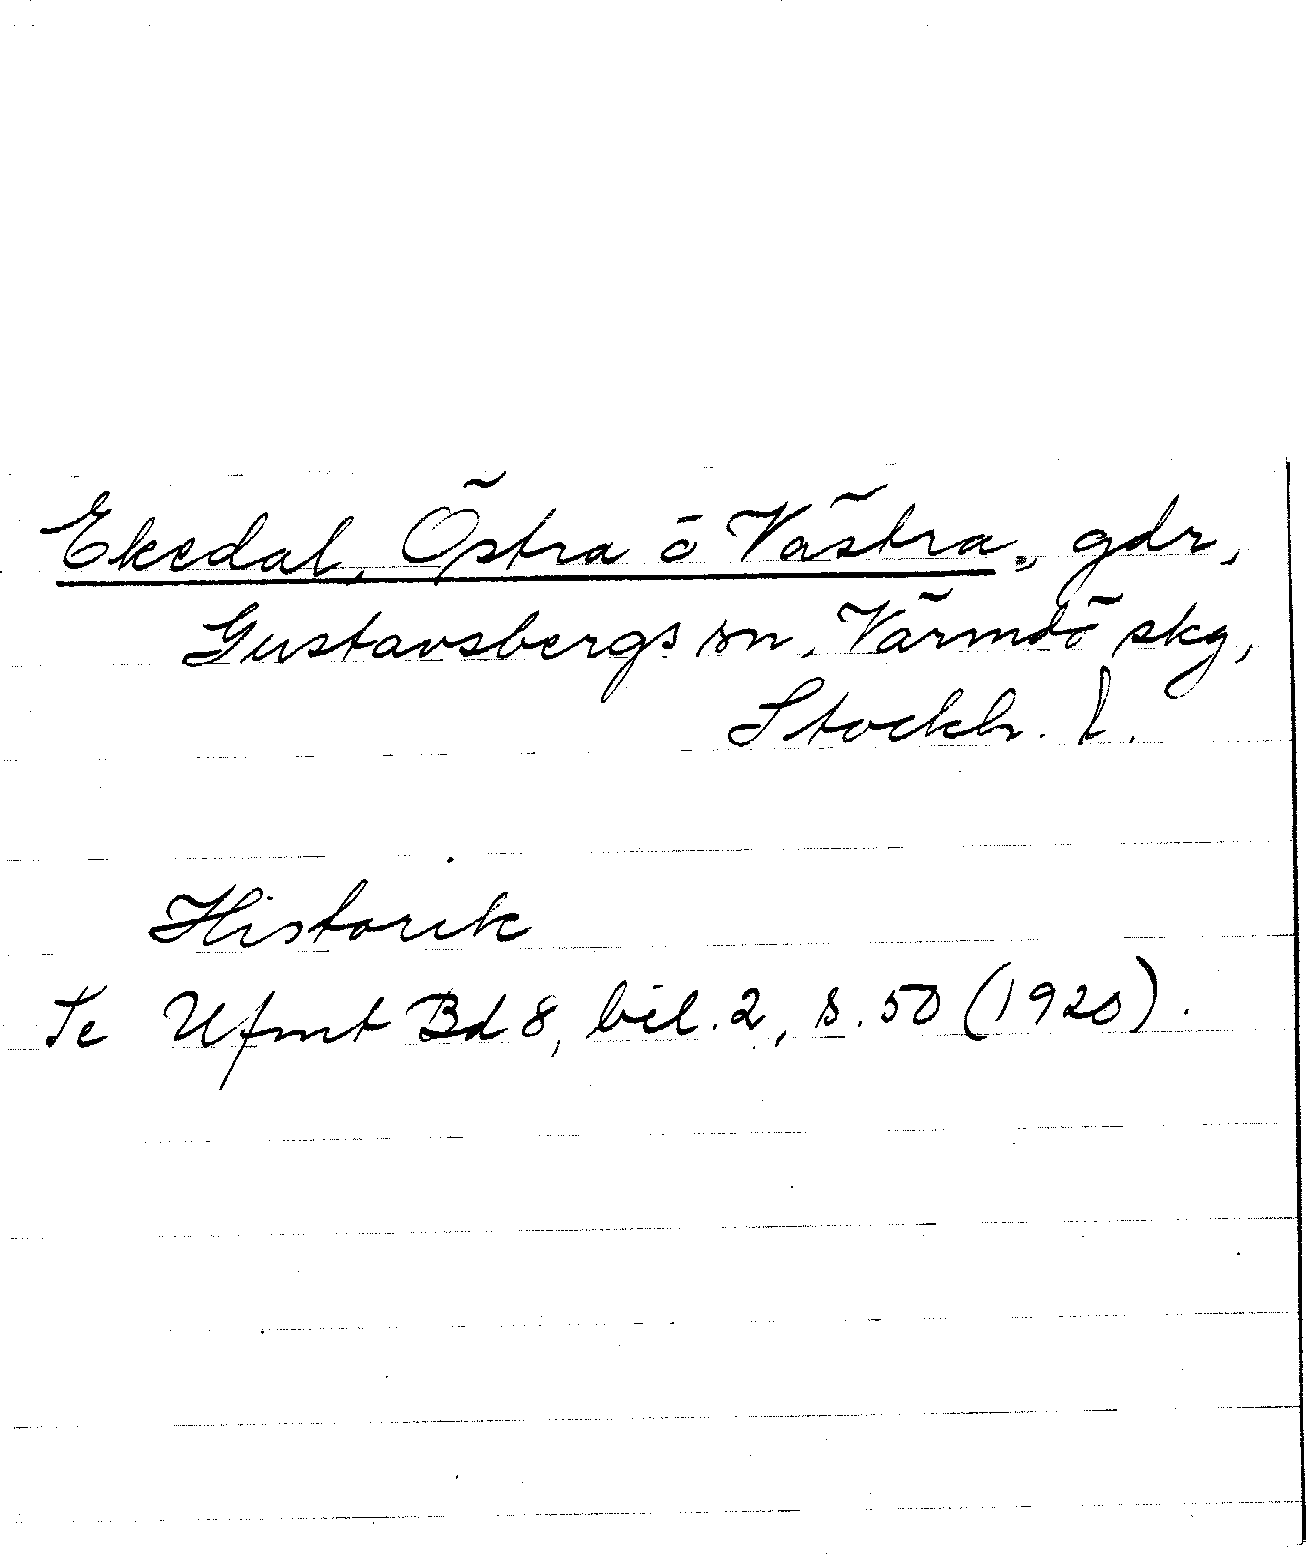 Ekedal, Östra o Västra, gdr,
Gustavsbergs sn, Värmdö skg,
Stockh. l.
Historik
Se Ufmt Bd 8, bil. 2, s. 50 (1920).